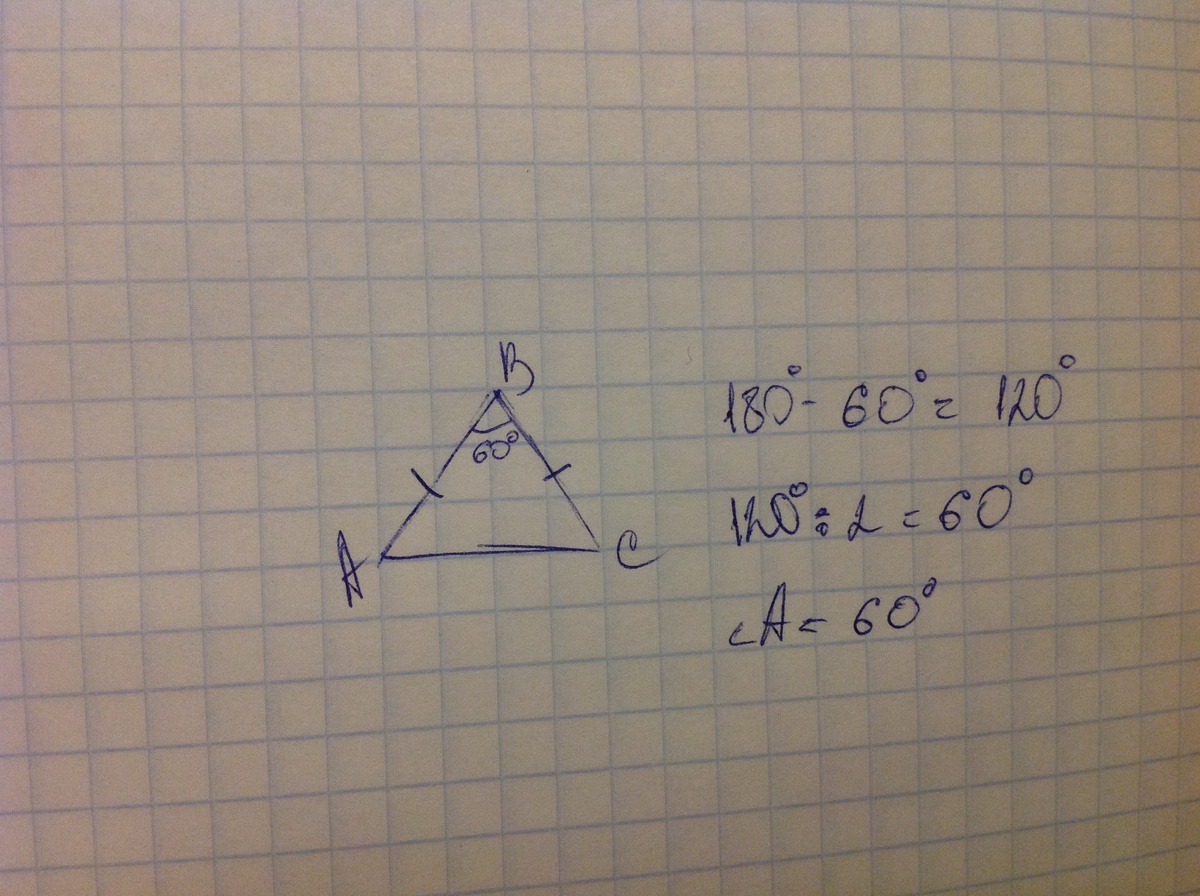 B
60°
A
C
180° - 60° = 120°
120° : 2 = 60°
∠A = 60°